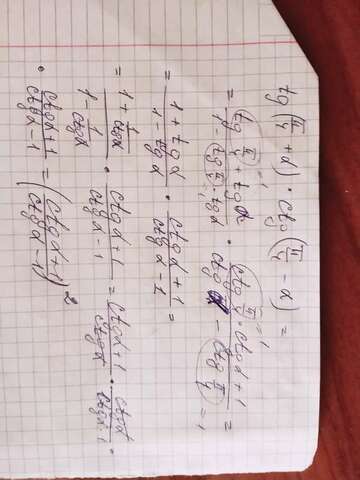 tg(π/4 + α) · ctg(π/4 − α) =
= (tg π/4 + tgα)/(1 − tg π/4 · tgα) · (ctg π/4 · ctgα + 1)/(ctgα − ctg π/4) =
= (1 + tgα)/(1 − tgα) · (ctgα + 1)/(ctgα − 1) =
= (1 + 1/ctgα)/(1 − 1/ctgα) · (ctgα + 1)/(ctgα − 1) = (ctgα + 1)/ctgα · ctgα/(ctgα − 1) ·
· (ctgα + 1)/(ctgα − 1) = ((ctgα + 1)/(ctgα − 1))²